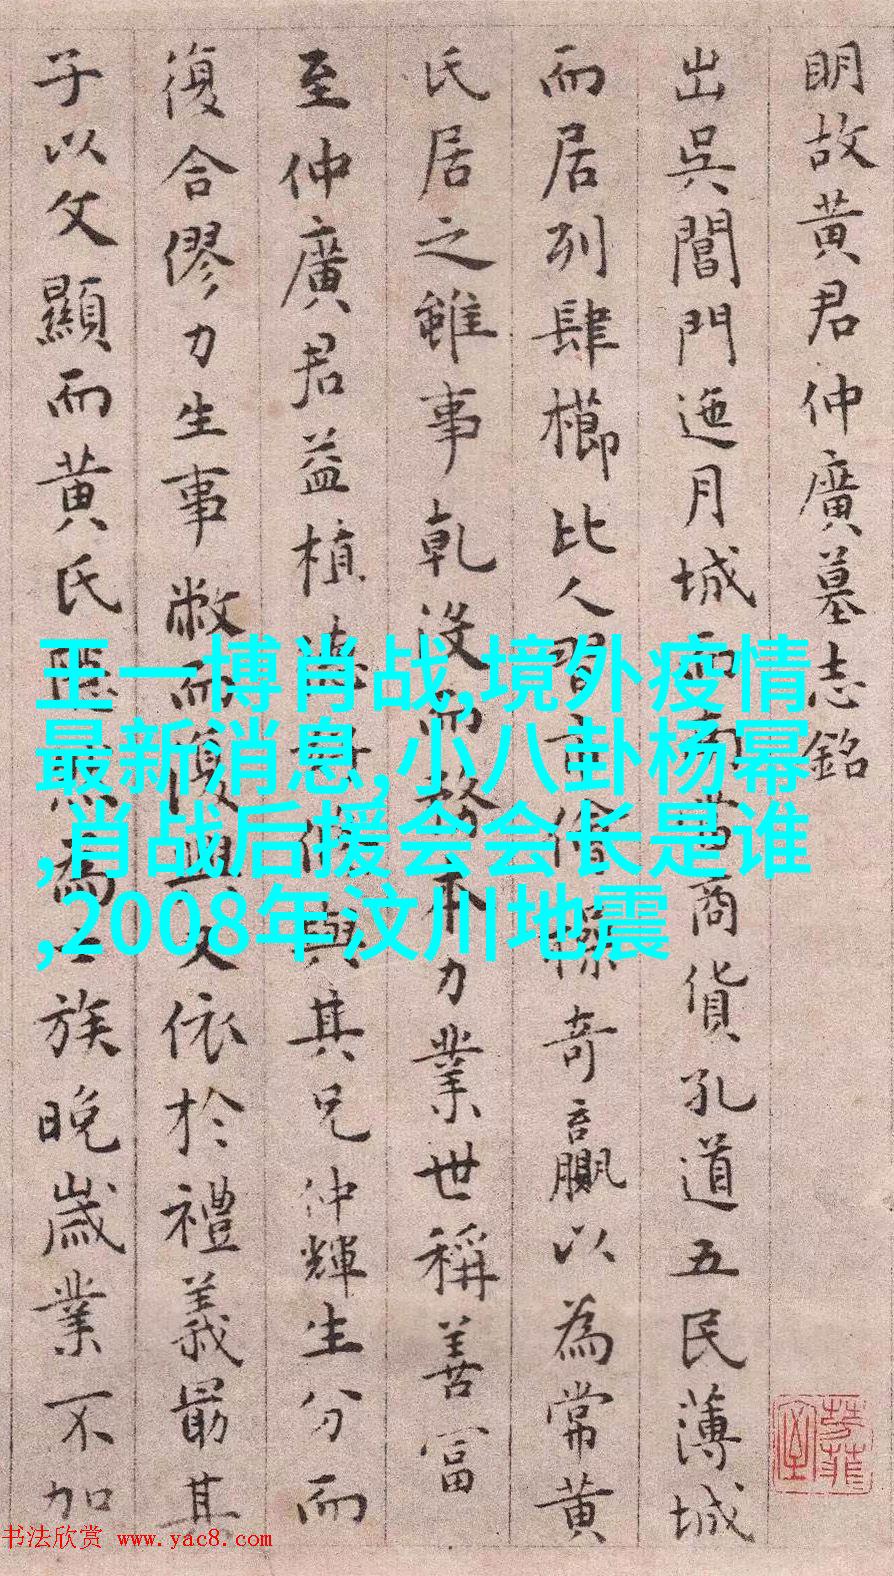 眀故黄君仲廣墓志銘
出吳閶門迤月城而南當商貨孔道五民薄城
而居列肆櫛比人習市儈操奇贏以為常黄
氏居之雖事乾没而務本力業世稱善富
至仲廣君益植與其兄仲輝生分而
復合僇力生事敝而復興又依於禮義最其
子以文顯而黄氏隱然為士族晚歲業不加
王一博肖战,境外疫情
最新消息,小八卦杨幂
,肖战后援会会长是谁
,2008年汶川地震
书法欣赏 www.yac8.com